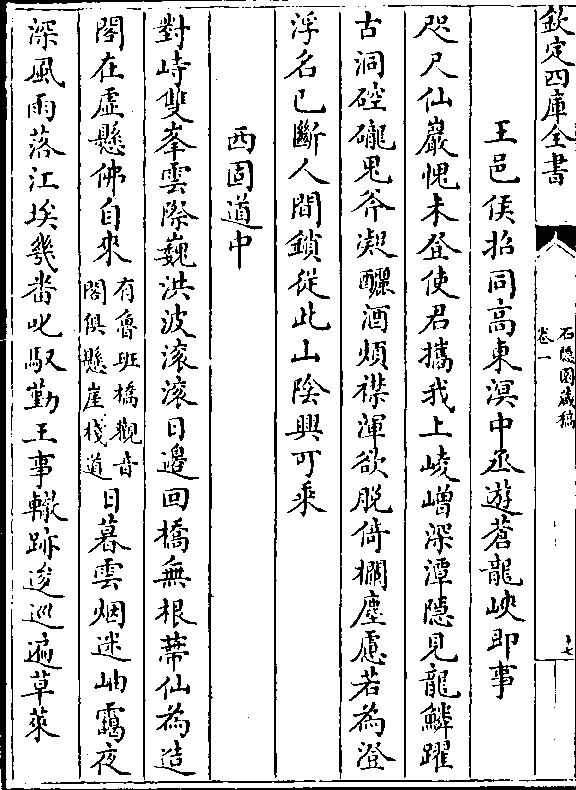 欽定四庫全書
石隱園藏稿
卷一
十七
王邑侯招同高東溟中丞遊蒼龍峽即事
咫尺仙巖愧未登使君攜我上崚嶒深潭隱見龍鱗躍
古洞硿礲鬼斧凝釃酒煩襟渾欲脫倚欄塵慮若為澄
浮名已斷人間鎖從此山陰興可乘
西固道中
對峙雙峯雲際巍洪波滚滚日邊回橋無根蔕仙為造
閣在虛懸佛自來有魯班橋觀音閣俱懸崖棧道日暮雲烟迷岫靄夜
深風雨落江埃幾畨叱馭勤王事轍跡逡巡遍草萊